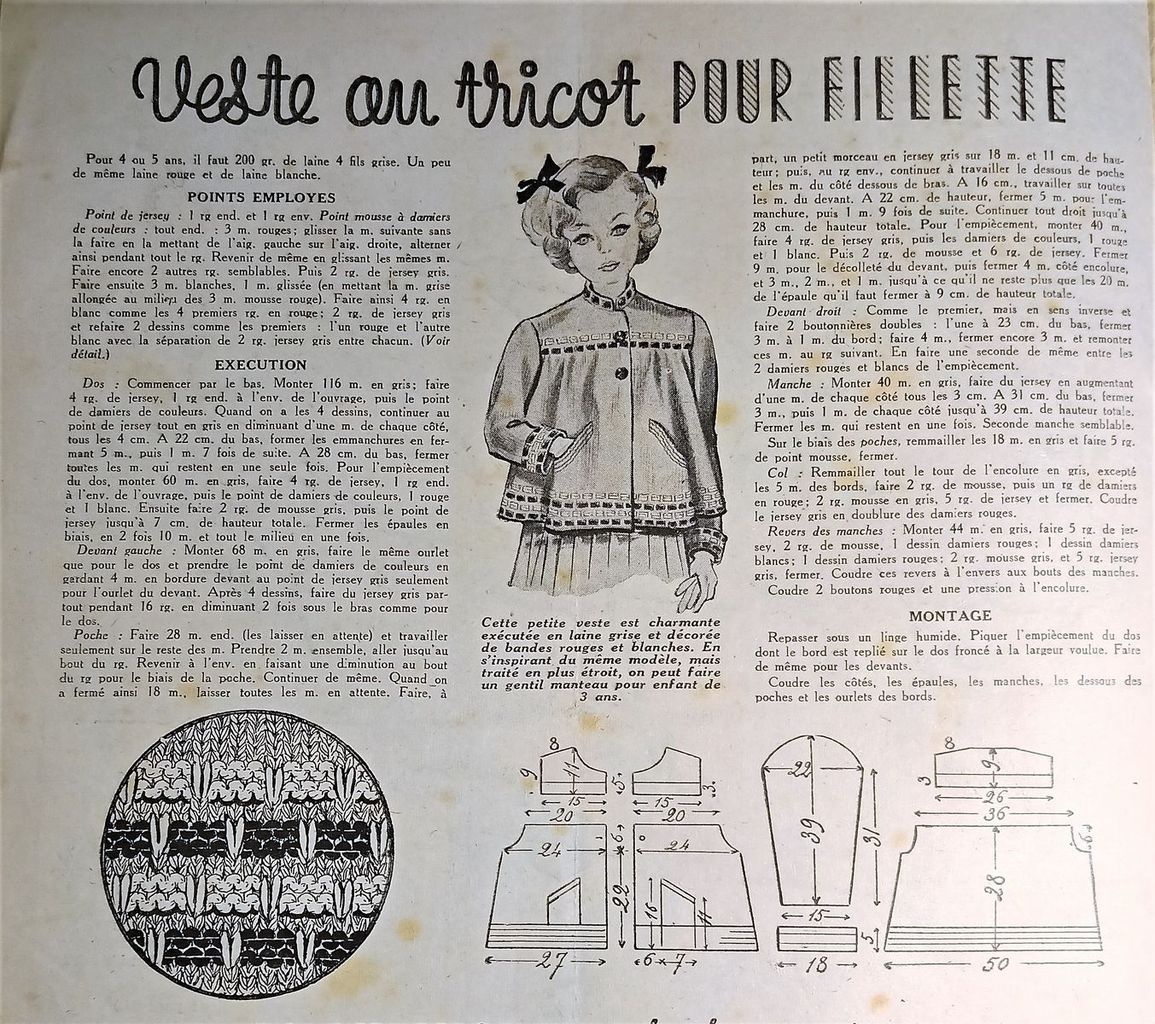 Veste au tricot POUR FILLETTE
Pour 4 ou 5 ans, il faut 200 gr. de laine 4 fils grise. Un peu
de même laine rouge et de laine blanche.
POINTS EMPLOYES
Point de jersey : 1 rg end. et 1 rg env. Point mousse à damiers
de couleurs : tout end. : 3 m. rouges; glisser la m. suivante sans
la faire en la mettant de l'aig. gauche sur l'aig. droite, alterner
ainsi pendant tout le rg. Revenir de même en glissant les mêmes m.
Faire encore 2 autres rg. semblables. Puis 2 rg. de jersey gris.
Faire ensuite 3 m. blanches, 1 m. glissée (en mettant la m. grise
allongée au milieu des 3 m. mousse rouge). Faire ainsi 4 rg. en
blanc comme les 4 premiers rg. en rouge; 2 rg. de jersey gris
et refaire 2 dessins comme les premiers : l'un rouge et l'autre
blanc avec la séparation de 2 rg. jersey gris entre chacun. (Voir
détail.)
EXECUTION
Dos : Commencer par le bas. Monter 116 m. en gris; faire
4 rg. de jersey, 1 rg end. à l'env. de l'ouvrage, puis le point
de damiers de couleurs. Quand on a les 4 dessins, continuer au
point de jersey tout en gris en diminuant d'une m. de chaque côté,
tous les 4 cm. A 22 cm. du bas, former les emmanchures en fer-
mant 5 m., puis 1 m. 7 fois de suite. A 28 cm. du bas, fermer
toutes les m. qui restent en une seule fois. Pour l'empiècement
du dos, monter 60 m. en gris, faire 4 rg. de jersey, 1 rg end.
à l'env. de l'ouvrage, puis le point de damiers de couleurs, 1 rouge
et 1 blanc. Ensuite faire 2 rg. de mousse gris, puis le point de
jersey jusqu'à 7 cm. de hauteur totale. Fermer les épaules en
biais, en 2 fois 10 m. et tout le milieu en une fois.
Devant gauche : Monter 68 m. en gris, faire le même ourlet
que pour le dos et prendre le point de damiers de couleurs en
gardant 4 m. en bordure devant au point de jersey gris seulement
pour l'ourlet du devant. Après 4 dessins, faire du jersey gris par-
tout pendant 16 rg. en diminuant 2 fois sous le bras comme pour
le dos.
Poche : Faire 28 m. end. (les laisser en attente) et travailler
seulement sur le reste des m. Prendre 2 m. ensemble, aller jusqu'au
bout du rg. Revenir à l'env. en faisant une diminution au bout
du rg pour le biais de la poche. Continuer de même. Quand on
a fermé ainsi 18 m., laisser toutes les m. en attente. Faire, à
Cette petite veste est charmante
exécutée en laine grise et décorée
de bandes rouges et blanches. En
s'inspirant du même modèle, mais
traité en plus étroit, on peut faire
un gentil manteau pour enfant de
3 ans.
part, un petit morceau en jersey gris sur 18 m. et 11 cm. de hau-
teur; puis, au rg env., continuer à travailler le dessous de poche
et les m. du côté dessous de bras. A 16 cm., travailler sur toutes
les m. du devant. A 22 cm. de hauteur, fermer 5 m. pour l'em-
manchure, puis 1 m. 9 fois de suite. Continuer tout droit jusqu'à
28 cm. de hauteur totale. Pour l'empiècement, monter 40 m.,
faire 4 rg. de jersey gris, puis les damiers de couleurs, 1 rouge
et 1 blanc. Puis 2 rg. de mousse et 6 rg. de jersey. Fermer
9 m. pour le décolleté du devant, puis fermer 4 m. côté encolure,
et 3 m., 2 m., et 1 m. jusqu'à ce qu'il ne reste plus que les 20 m.
de l'épaule qu'il faut fermer à 9 cm. de hauteur totale.
Devant droit : Comme le premier, mais en sens inverse et
faire 2 boutonnières doubles : l'une à 23 cm. du bas, fermer
3 m. à 1 m. du bord; faire 4 m., fermer encore 3 m. et remonter
ces m. au rg suivant. En faire une seconde de même entre les
2 damiers rouges et blancs de l'empiècement.
Manche : Monter 40 m. en gris, faire du jersey en augmentant
d'une m. de chaque côté tous les 3 cm. A 31 cm. du bas, fermer
3 m., puis 1 m. de chaque côté jusqu'à 39 cm. de hauteur totale.
Fermer les m. qui restent en une fois. Seconde manche semblable.
Sur le biais des poches, remmailler les 18 m. en gris et faire 5 rg.
de point mousse, fermer.
Col : Remmailler tout le tour de l'encolure en gris, excepté
les 5 m. des bords, faire 2 rg. de mousse, puis un rg de damiers
en rouge; 2 rg. mousse en gris, 5 rg. de jersey et fermer. Coudre
le jersey gris en doublure des damiers rouges.
Revers des manches : Monter 44 m. en gris, faire 5 rg. de jer-
sey, 2 rg. de mousse, 1 dessin damiers rouges; 1 dessin damiers
blancs; 1 dessin damiers rouges; 2 rg. mousse gris, et 5 rg. jersey
gris, fermer. Coudre ces revers à l'envers aux bouts des manches.
Coudre 2 boutons rouges et une pression à l'encolure.
MONTAGE
Repasser sous un linge humide. Piquer l'empiècement du dos
dont le bord est replié sur le dos froncé à la largeur voulue. Faire
de même pour les devants.
Coudre les côtés, les épaules, les manches, les dessous des
poches et les ourlets des bords.
8
9
11
15
20
5
3
15
20
24
6
22
24
16
11
27
6 7
22
39
31
15
5
18
8
9
3
26
36
6
28
50